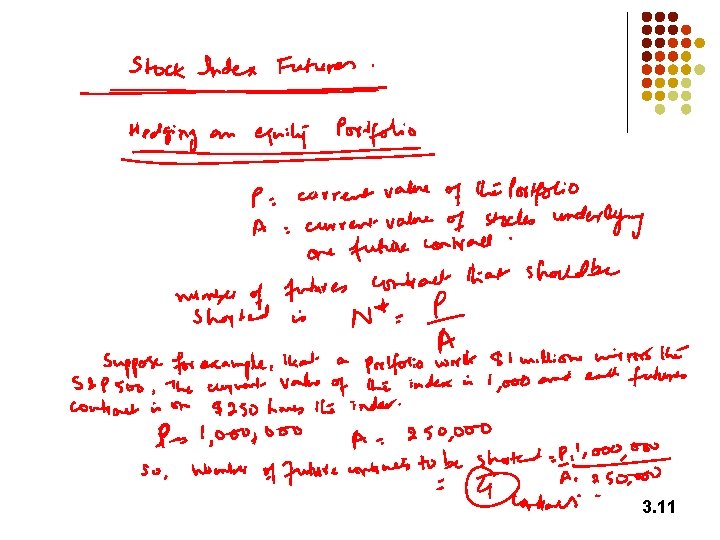 Stock Index Futures.
Hedging an equity Portfolio
P = current value of the Portfolio
A = current value of stocks underlying
one future contract.
number of futures contract that should be
shorted is N* = P / A
Suppose for example, that a portfolio worth $1 million mirrors the
S&P 500, The current value of the index is 1,000 and each futures
contract is on $250 times the index.
P = 1,000,000 A = 250,000
So, Number of future contracts to be shorted = P. 1,000,000 / A. 250,000
= 4 contracts
3. 11